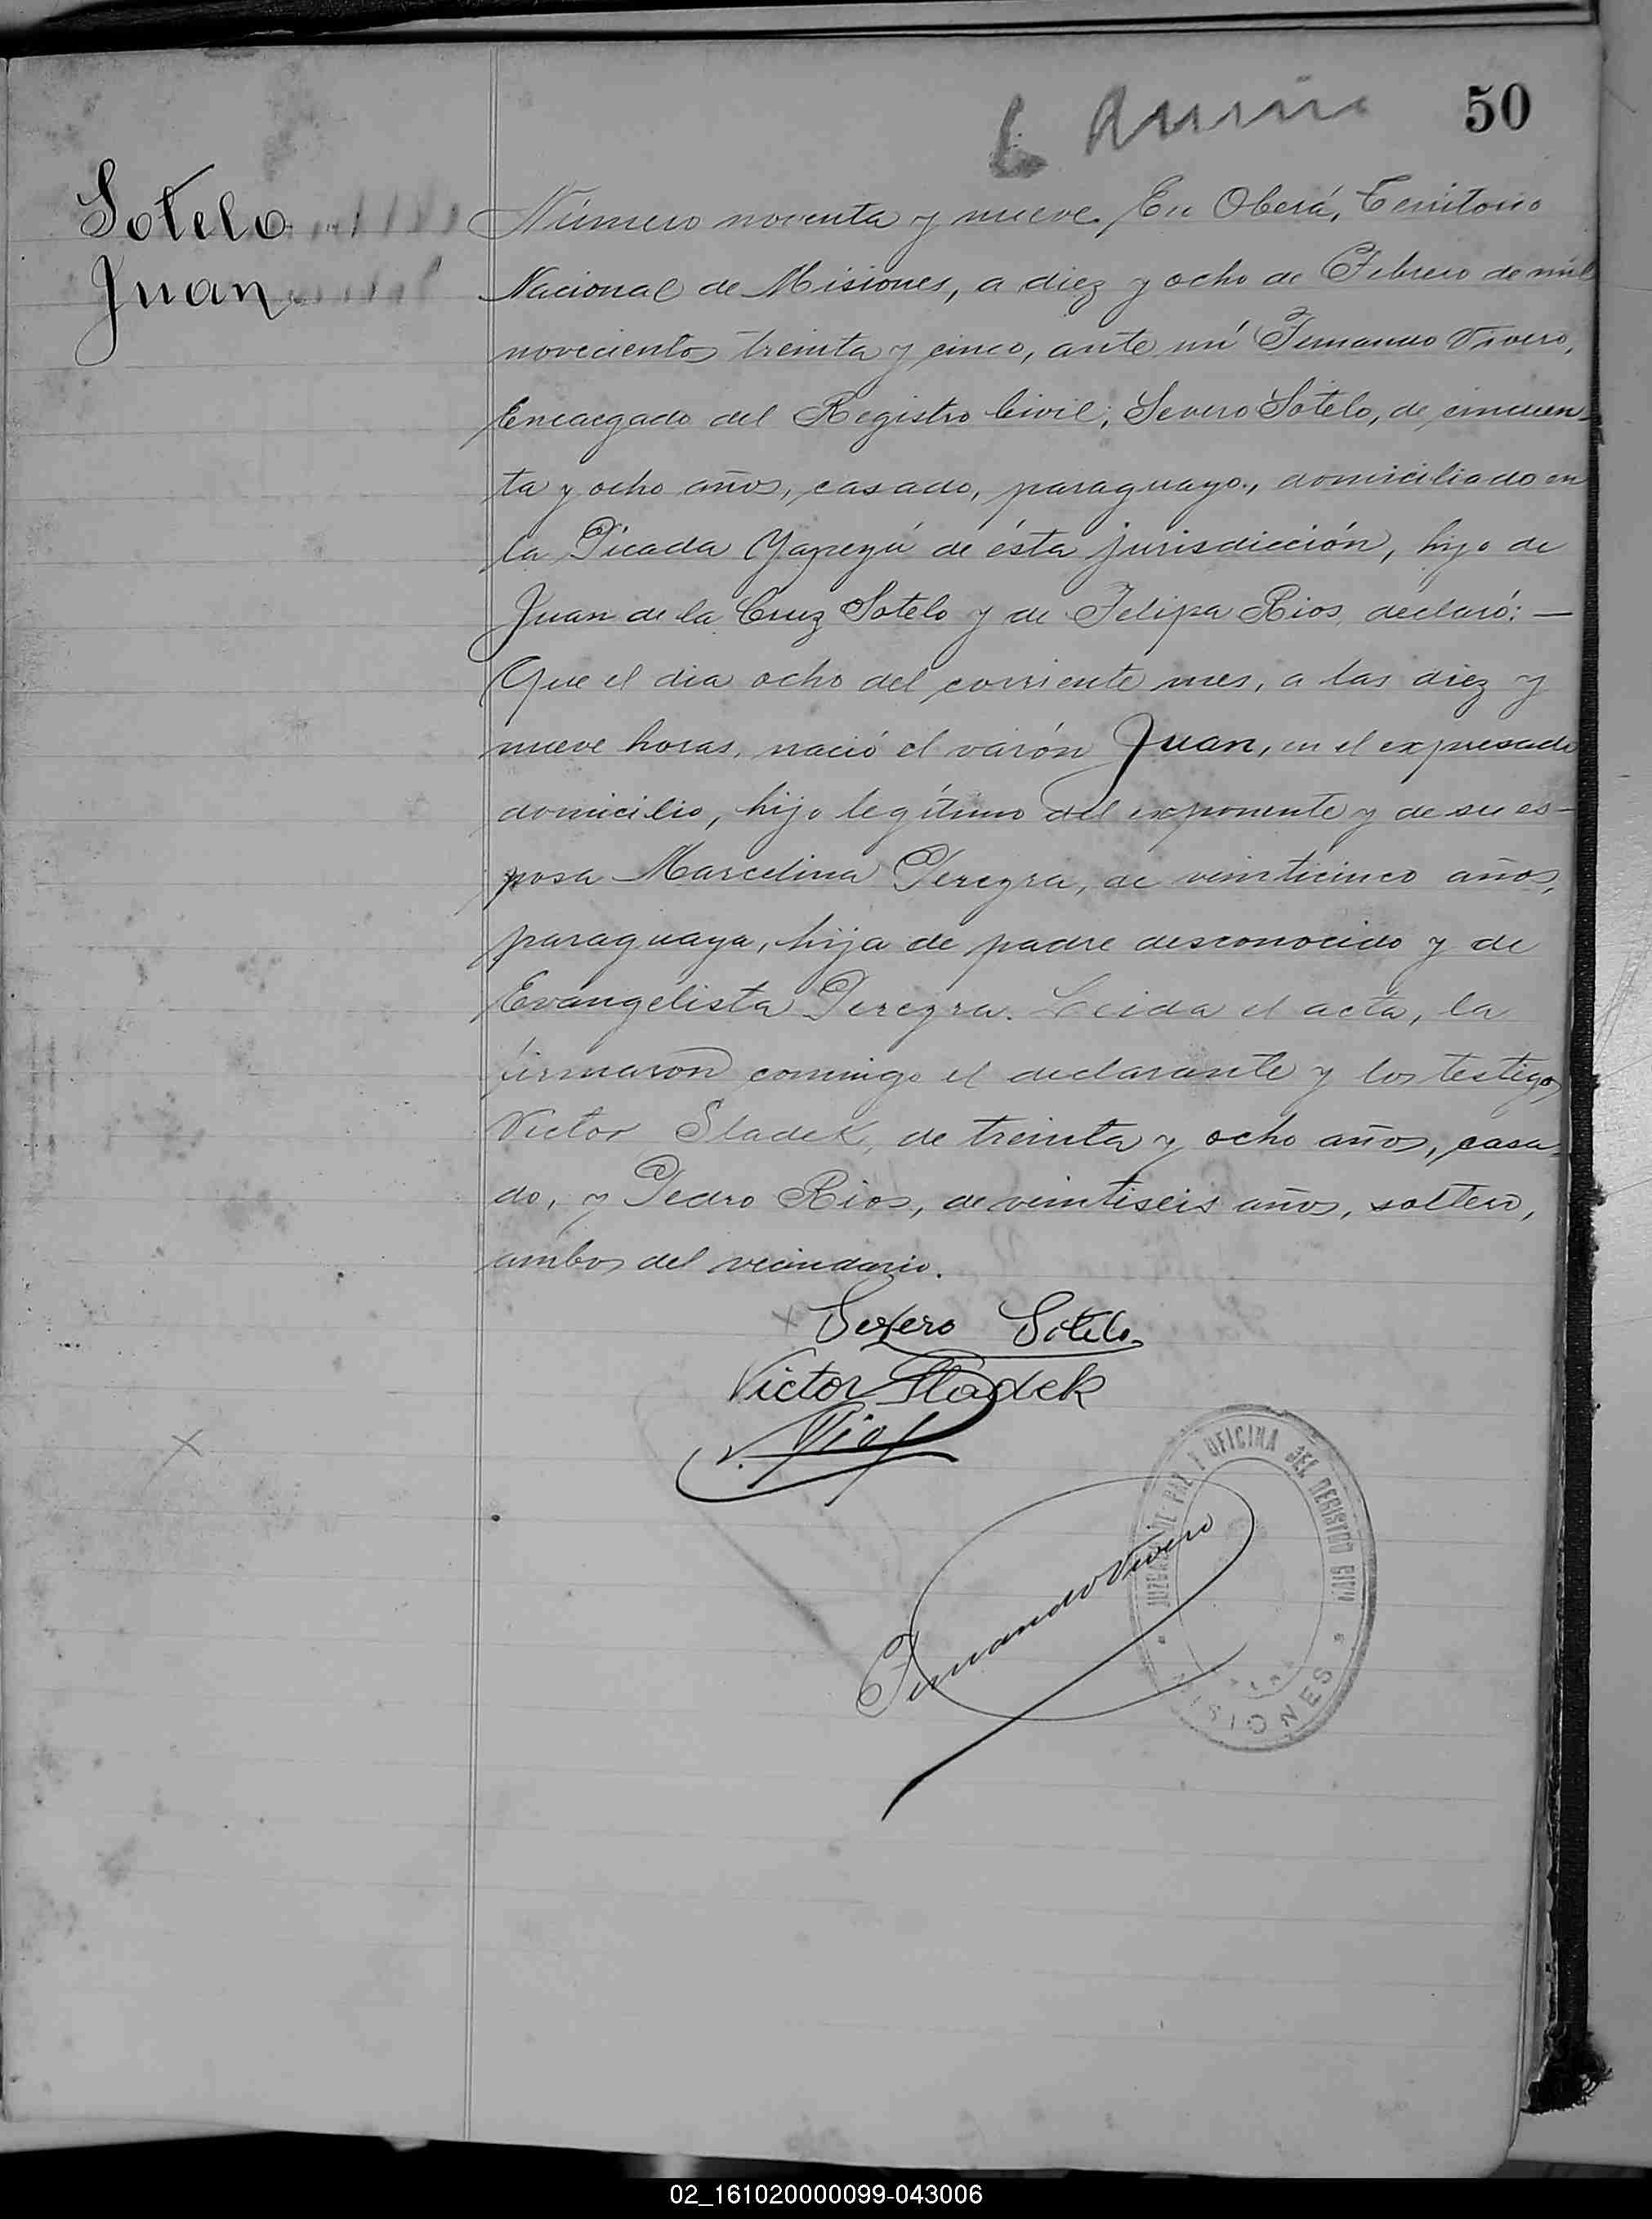 50
Sotelo
Juan
Número noventa y nueve. En Oberá, Territorio
Nacional de Misiones, a diez y ocho de Febrero de mil
novecientos treinta y cinco, ante mí Fernando Vivero,
Encargado del Registro Civil; Severo Sotelo, de cincuen-
ta y ocho años, casado, paraguayo, domiciliado en
la Picada Yapeyú de ésta jurisdicción, hijo de
Juan de la Cruz Sotelo y de Felipa Rios, declaró: —
Que el dia ocho del corriente mes, a las diez y
nueve horas, nació el varón Juan, en el expresado
domicilio, hijo legítimo del exponente y de su es-
posa Marcelina Pereyra, de veinticinco años,
paraguaya, hija de padre desconocido y de
Evangelista Pereyra. Leida el acta, la
firmaron conmigo el declarante y los testigos
Victor Sladek, de treinta y ocho años, casa-
do, y Pedro Rios, de veintiseis años, soltero,
ambos del vecindario.
x Severo Sotelo
Victor Sladek
Rios
Fernando Vivero
JUZGADO DE PAZ Y OFICINA DEL REGISTRO CIVIL
MISIONES
02_161020000099-043006